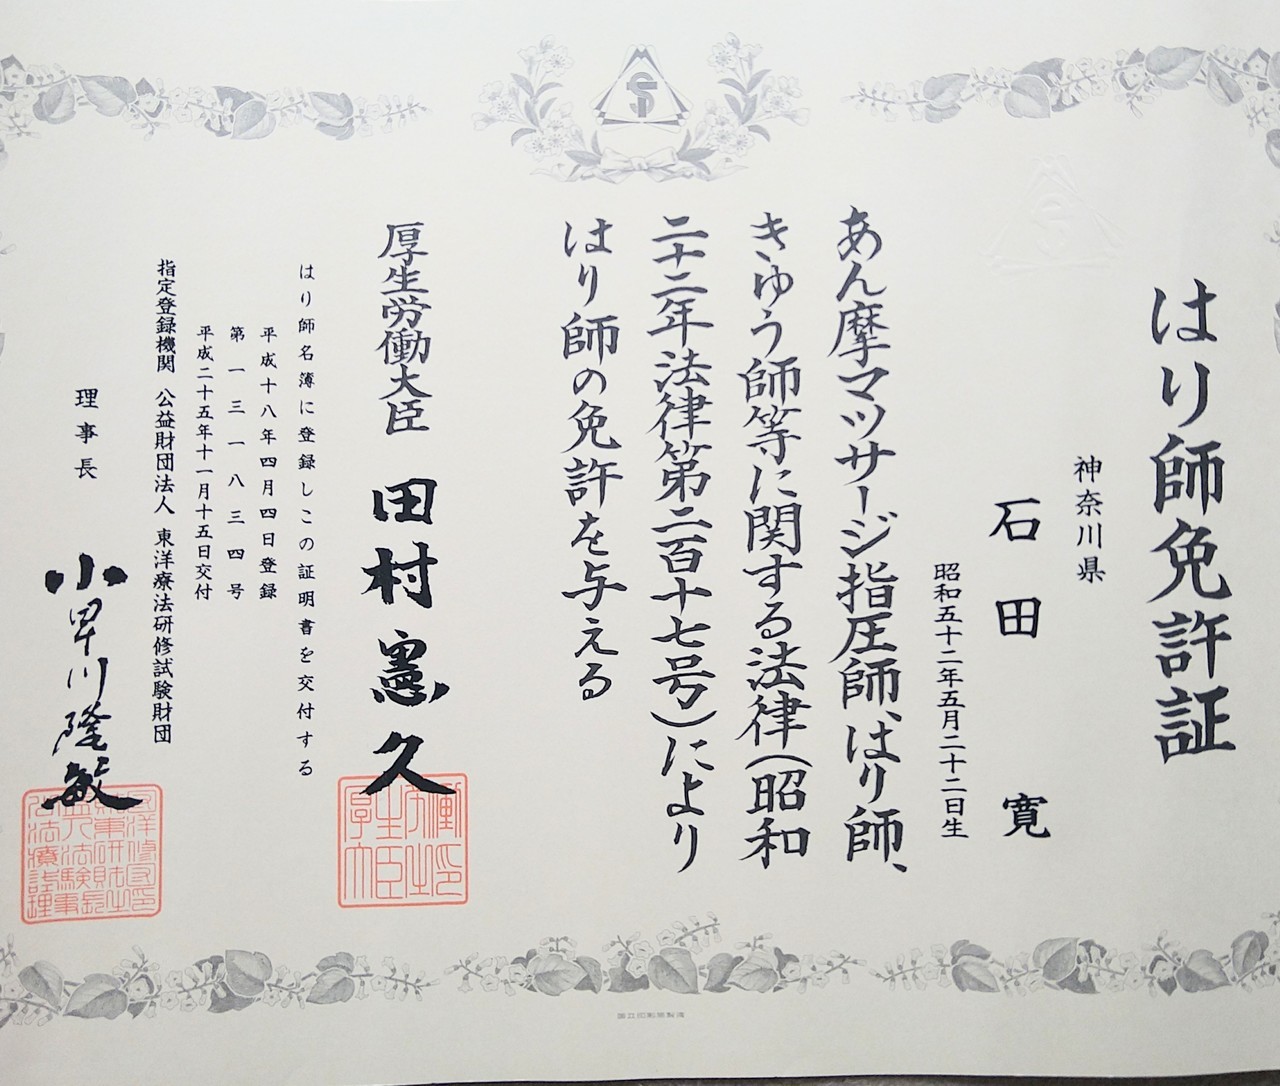 はり師免許証
神奈川県
石田 寛
昭和五十二年五月二十二日生
あん摩マツサージ指圧師、はり師、
きゆう師等に関する法律(昭和
二十二年法律第二百十七号)により
はり師の免許を与える
厚生労働大臣 田村憲久
はり師名簿に登録しこの証明書を交付する
平成十八年四月四日登録
第一三一八三四号
平成二十五年十一月十五日交付
指定登録機関 公益財団法人 東洋療法研修試験財団
理事長 小早川隆敏
国立印刷局製造